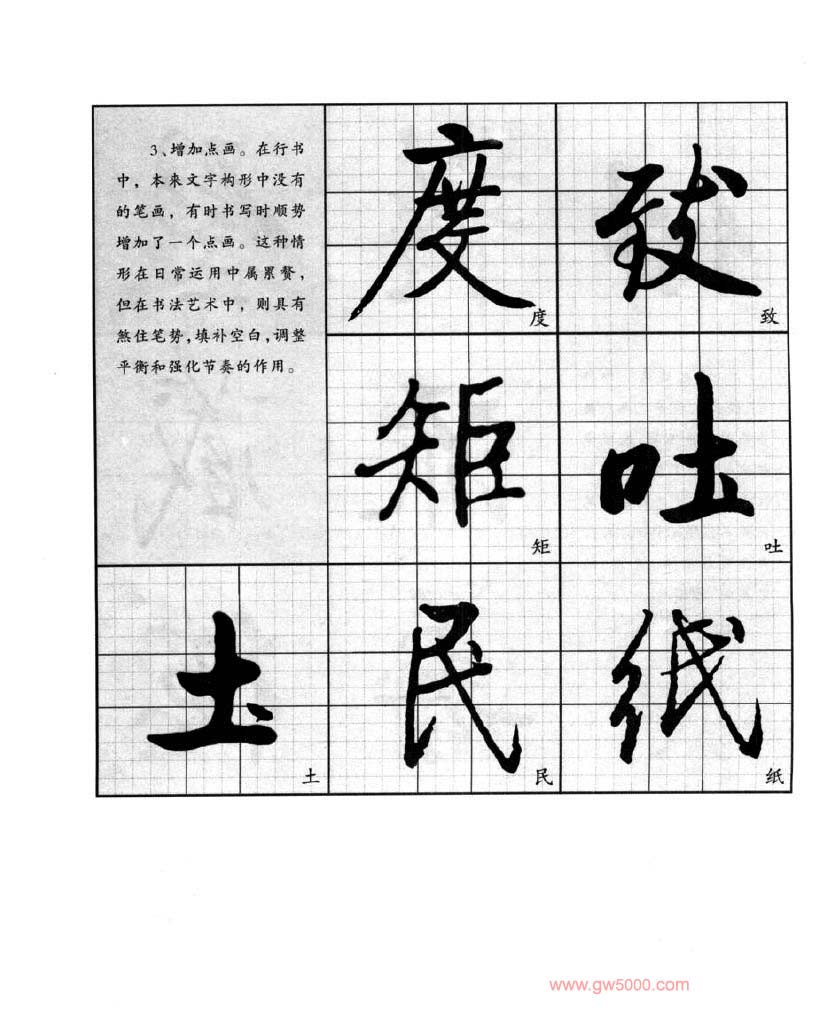 3、增加点画。在行书
中，本来文字构形中没有
的笔画，有时书写时顺势
增加了一个点画。这种情
形在日常运用中属累赘，
但在书法艺术中，则具有
煞住笔势，填补空白，调整
平衡和强化节奏的作用。
度 致
度 致
矩 吐
矩 吐
土 民 纸
土 民 纸
www.gw5000.com